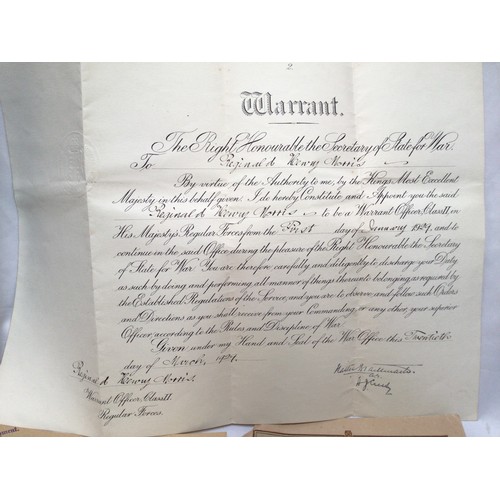 2.
Warrant.
The Right Honourable the Secretary of State for War.
To Reginald Henry Norris
By virtue of the Authority to me, by the Kings Most Excellent
Majesty in this behalf given I do hereby Constitute and Appoint you the said
Reginald Henry Norris to be a Warrant Officer, Class II, in
His Majesty's Regular Forces from the First day of January 1921, and to
continue in the said Office during the pleasure of the Right Honourable the Secretary
of State for War. You are therefore carefully and diligently to discharge your Duty
as such by doing and performing all manner of things thereunto belonging, as required by
the Established Regulations of the Service, and you are to observe and follow such Orders
and Directions as you shall receive from your Commanding, or any other, your superior
Officer, according to the Rules and Discipline of War.
Given under my Hand and Seal of the War Office this Twentieth
day of March, 1921.
Reginald Henry Norris
Warrant Officer, Class II.
Regular Forces.